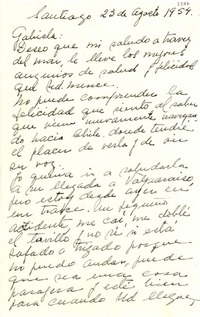 Santiago 23 de Agosto 1954.
Gabriela:
Deseo que mi saludo a través
del mar, le lleve los mejores
augurios de salud y felicidad
que Ud. merece.
No puede comprender la
felicidad que siento al saber
que viene nuevamente navegan
do hacia Chile. donde tendré
el placer de verla y de oir
su voz.
Yo quería ir a saludarla
a su llegada a Valparaíso
pero estoy desde ayer en
un trance. Un pequeño
accidente, me caí, me doblé
el tovillo y no sé si está
safado o trizado porque
no puedo andar, puede
que sea una cosa
pasajera y esté bien
para cuando Ud llegue,